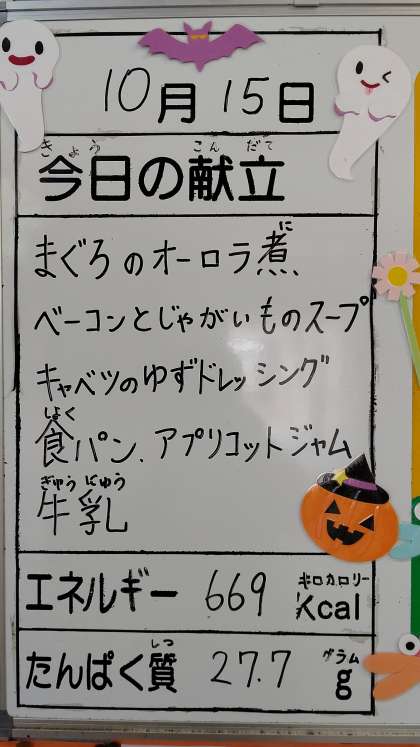 10月15日
きょう こん だて
今日の献立
に
まぐろのオーロラ煮
ベーコンとじゃがいものスープ
キャベツのゆずドレッシング
しょく
食パン、アプリコットジャム
ぎゅう にゅう
牛乳
キロカロリー
エネルギー 669 Kcal
しつ グラム
たんぱく質 27.7 g